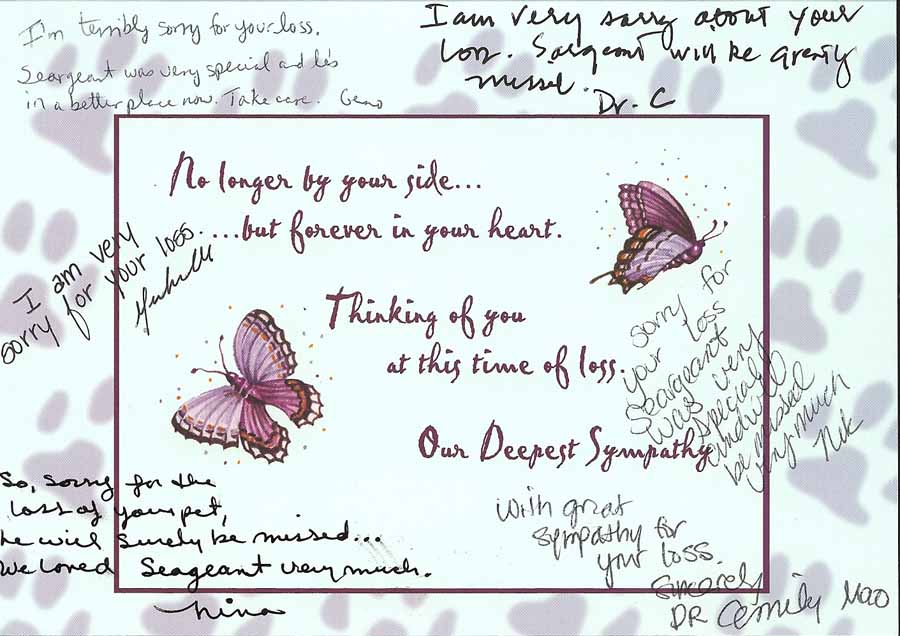 I'm terribly sorry for your loss.
Seargeant was very special and he's
in a better place now. Take care. Geno
I am very sorry about your
loss. Sargeant will be greatly
missed.
Dr. C
No longer by your side...
...but forever in your heart.
I am very
sorry for your loss.
Thinking of you
at this time of loss.
Our Deepest Sympathy
sorry for
your loss
Seargeant
was very
special
and will
be missed
very much
Nik
So, sorry for the
loss of your pet,
he will surely be missed...
We loved Seageant very much.
Nina
with great
sympathy for
your loss.
Sincerely
DR Cemily Mao